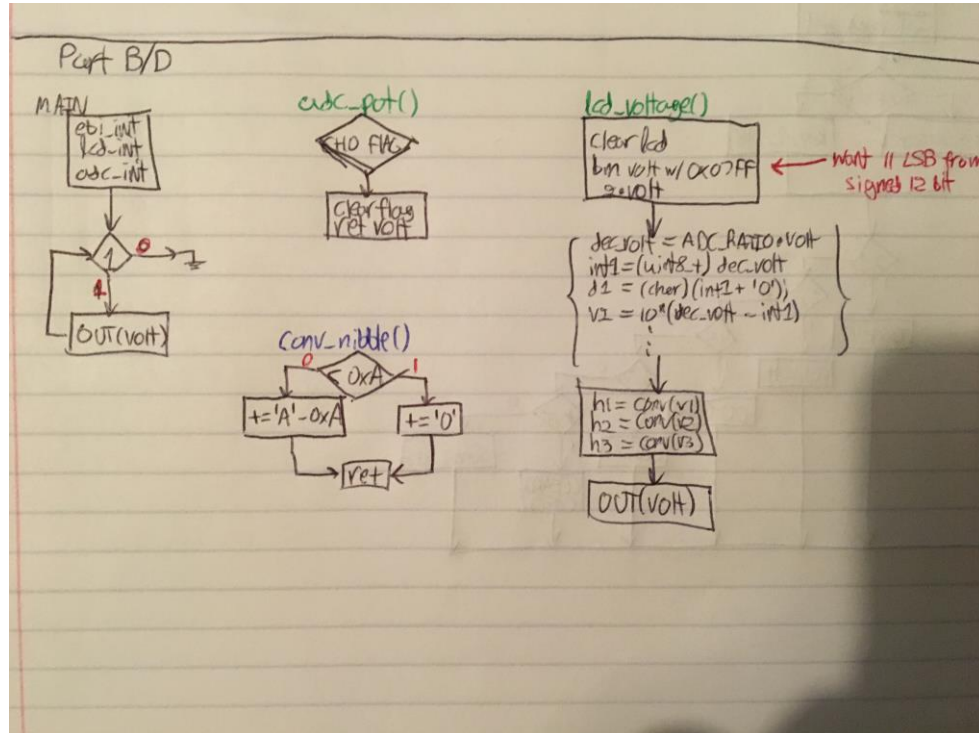 Part B/D
MAIN
ebi_int
lcd_int
adc_int
1
0
1
OUT(VOLT)
adc_pot()
CH0 FLAG
clear flag
ret volt
conv_nibble()
0
< 0xA
1
+='A'-0xA
+='0'
ret
lcd_voltage()
clear lcd
bm volt w/ 0x07FF
volt
want 11 LSB from
signed 12 bit
dec_volt = ADC_RATIO*VOLT
int1=(uint8_t) dec_volt
d1 = (char)(int1 + '0');
V2 = 10*(dec_volt - int1)
⋮
h1 = conv(v1)
h2 = conv(v2)
h3 = conv(v3)
OUT(VOLT)